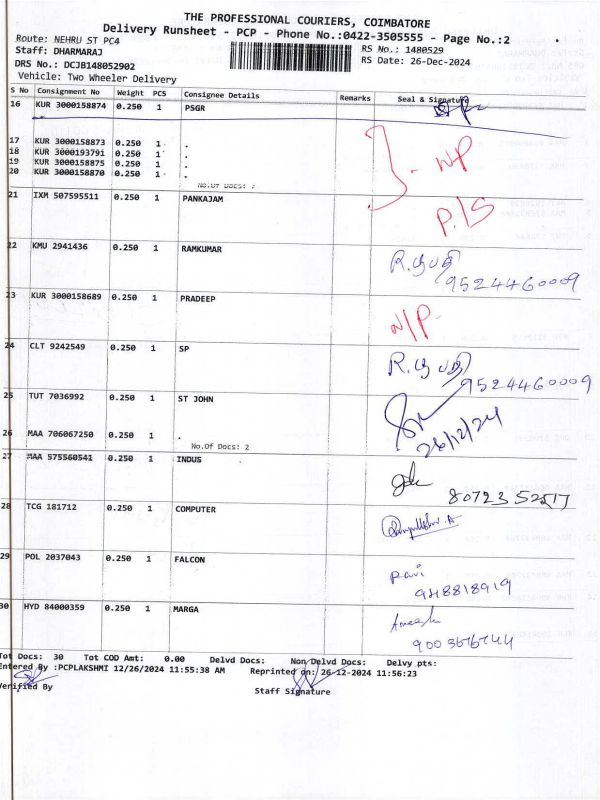 THE PROFESSIONAL COURIERS, COIMBATORE
Delivery Runsheet - PCP - Phone No.:0422-3505555 - Page No.:2
Route: NEHRU ST PC4
RS No.: 1480529
Staff: DHARMARAJ
RS Date: 26-Dec-2024
DRS No.: DCJB148052902
Vehicle: Two Wheeler Delivery
S No Consignment No Weight PCS Consignee Details Remarks Seal & Signature
16 KUR 3000158874 0.250 1 PSGR
17 KUR 3000158873 0.250 1 .
18 KUR 3000193791 0.250 1 .
19 KUR 3000158875 0.250 1 .
20 KUR 3000158870 0.250 1 .
N/P
No.Of Docs:
21 IXM 507595511 0.250 1 PANKAJAM
P/S
22 KMU 2941436 0.250 1 RAMKUMAR
9524460009
23 KUR 3000158689 0.250 1 PRADEEP
N/P
24 CLT 9242549 0.250 1 SP
9524460009
25 TUT 7036992 0.250 1 ST JOHN
26/12/24
26 MAA 706067250 0.250 1 .
No.Of Docs: 2
27 MAA 575560541 0.250 1 INDUS
28 TCG 181712 0.250 1 COMPUTER
29 POL 2037043 0.250 1 FALCON
Pavi
30 HYD 84000359 0.250 1 MARGA
Tot Docs: 30 Tot COD Amt: 0.00 Delvd Docs: Non Delvd Docs: Delvy pts:
Entered By :PCPLAKSHMI 12/26/2024 11:55:38 AM Reprinted on: 26-12-2024 11:56:23
Verified By
Staff Signature